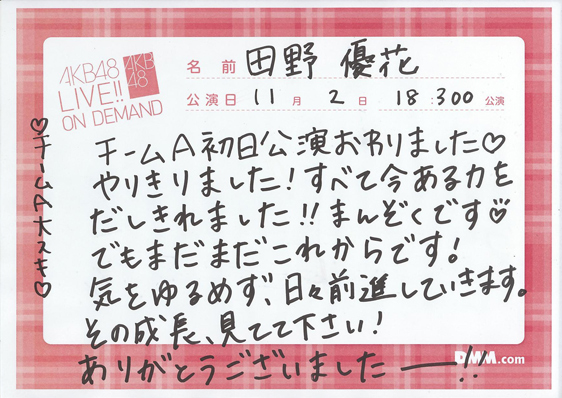 AKB48
LIVE!!
ON DEMAND
AKB
48
名前 田野 優花
公演日 11月 2日 18:300公演
チームA初日公演おわりました♡
やりきりました!すべて今ある力を
だしきれました!!まんぞくです♡
でもまだまだこれからです!
気をゆるめず、日々前進していきます。
その成長、見てて下さい!
ありがとうございましたー!!
♡チームA大スキ♡
DMM.com